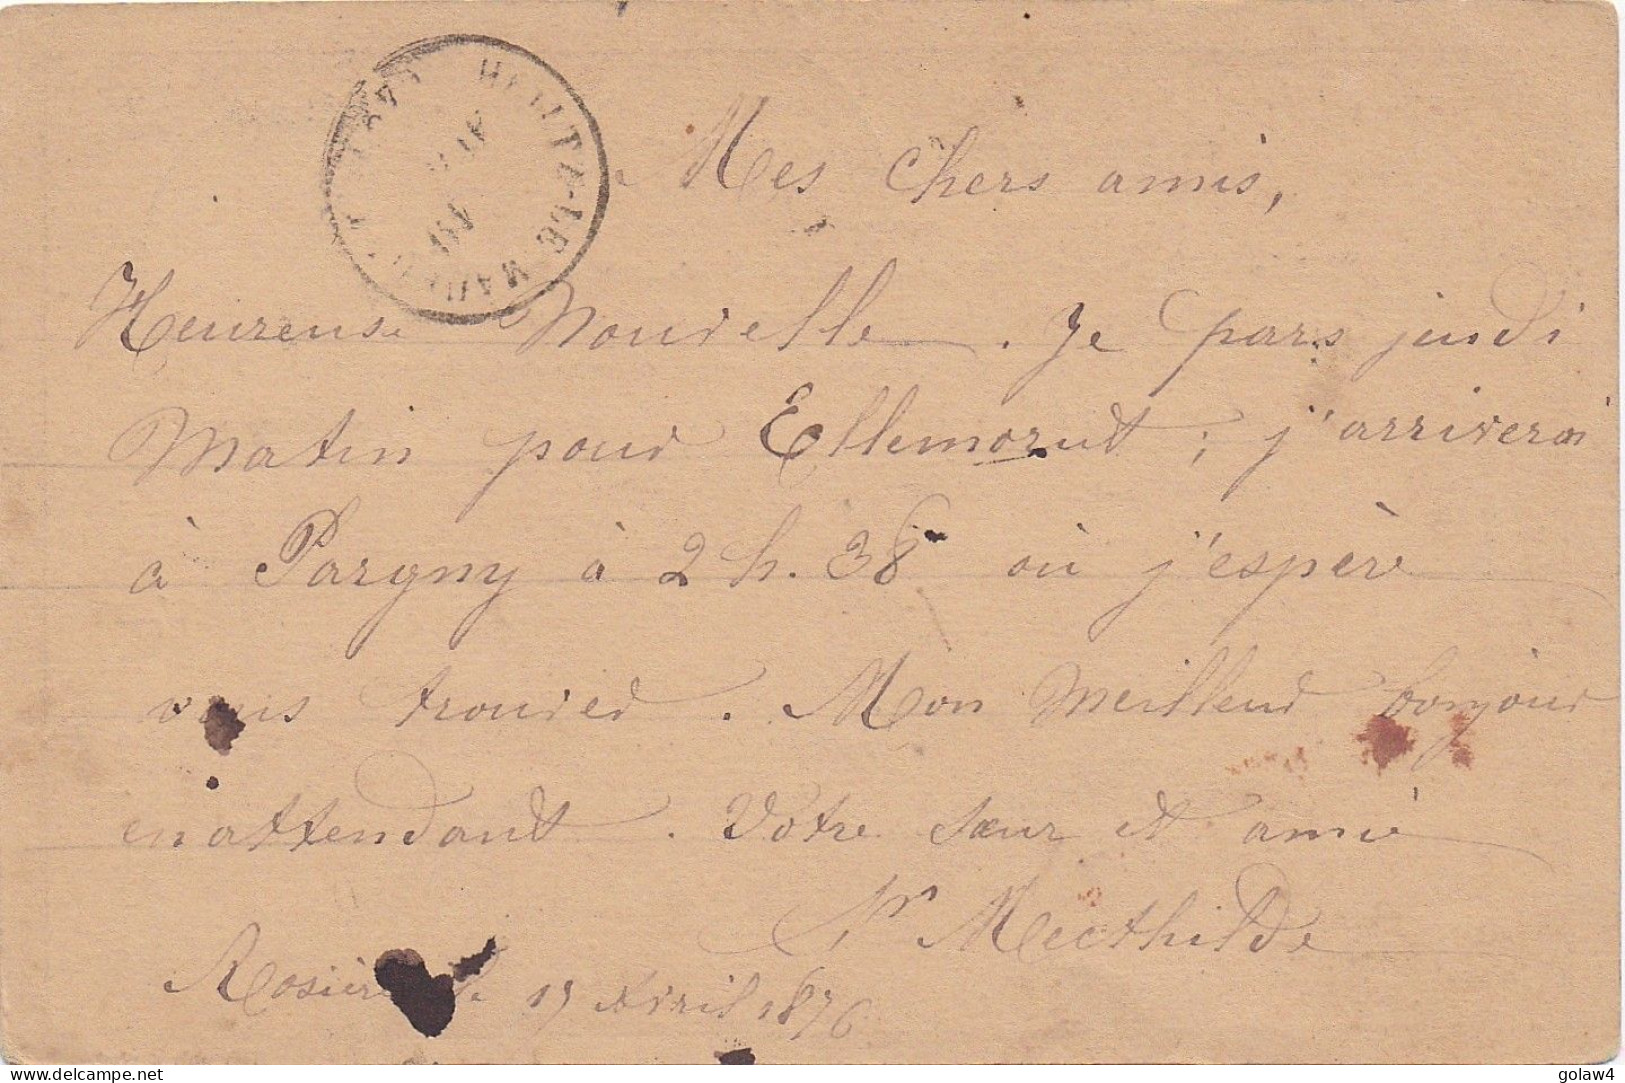 HEUTE-LE-MAU
Mes chers amis,
Heureuse Nouvelle. Je pars jeudi
Matin pour Ellemorut; j'arriverai
à Pargny à 2 h. 38 où j'espère
vous trouver. Mon meilleur bonjour
en attendant. Votre sœur et amie
Sr Mecthilde
le 17 Avril 1876
delcampe.net
golaw4